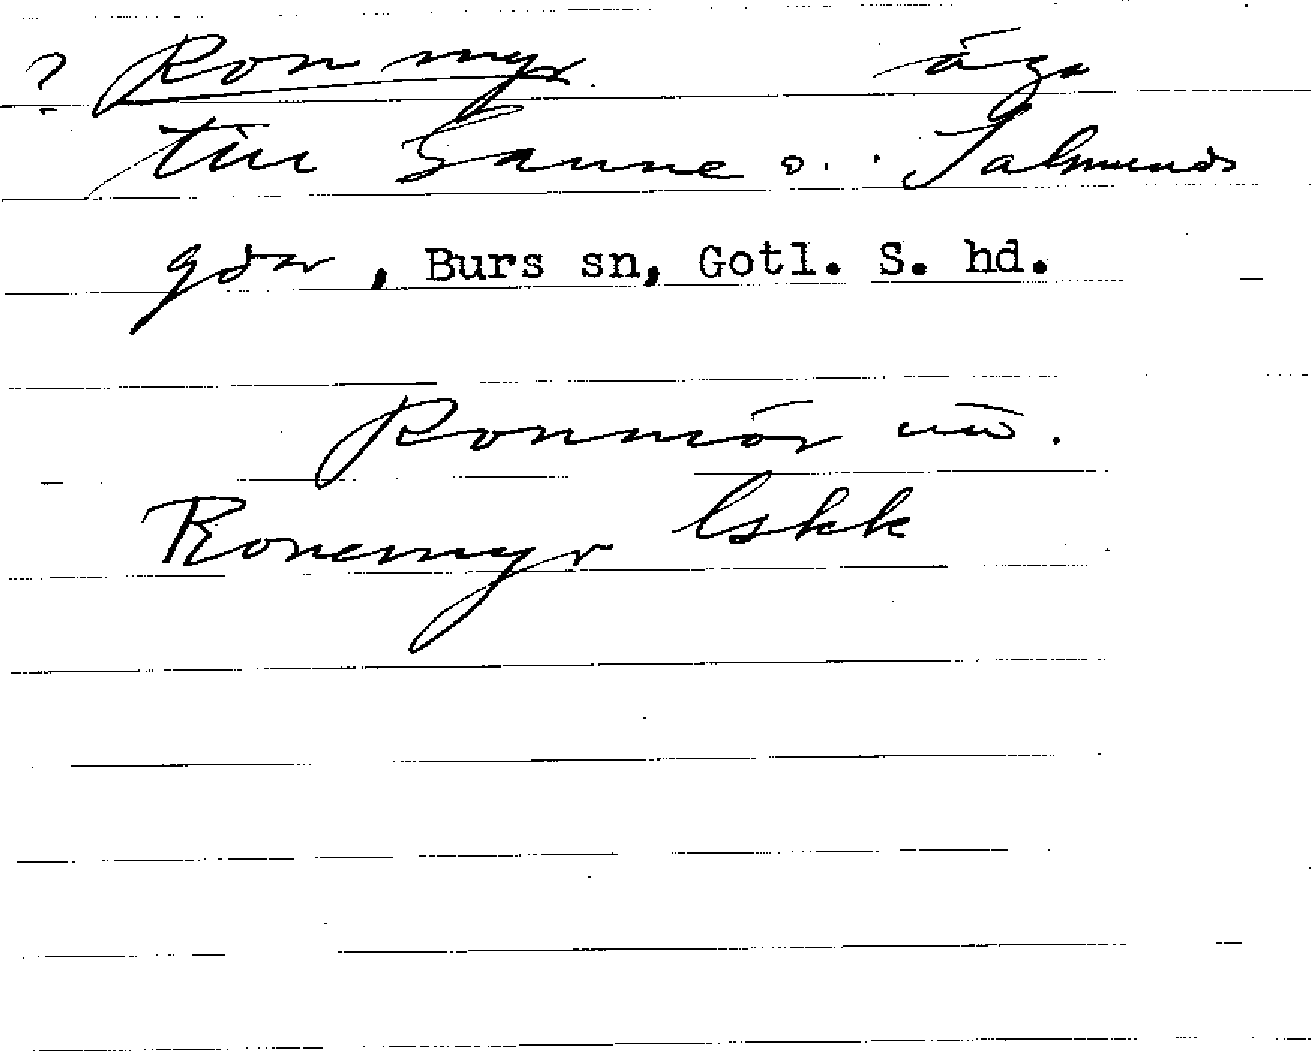 ? Ron myr äga
till Sanne o. Salmunds
gdar, Burs sn, Gotl. S. hd.
Ronmör
Ronemyr lskk